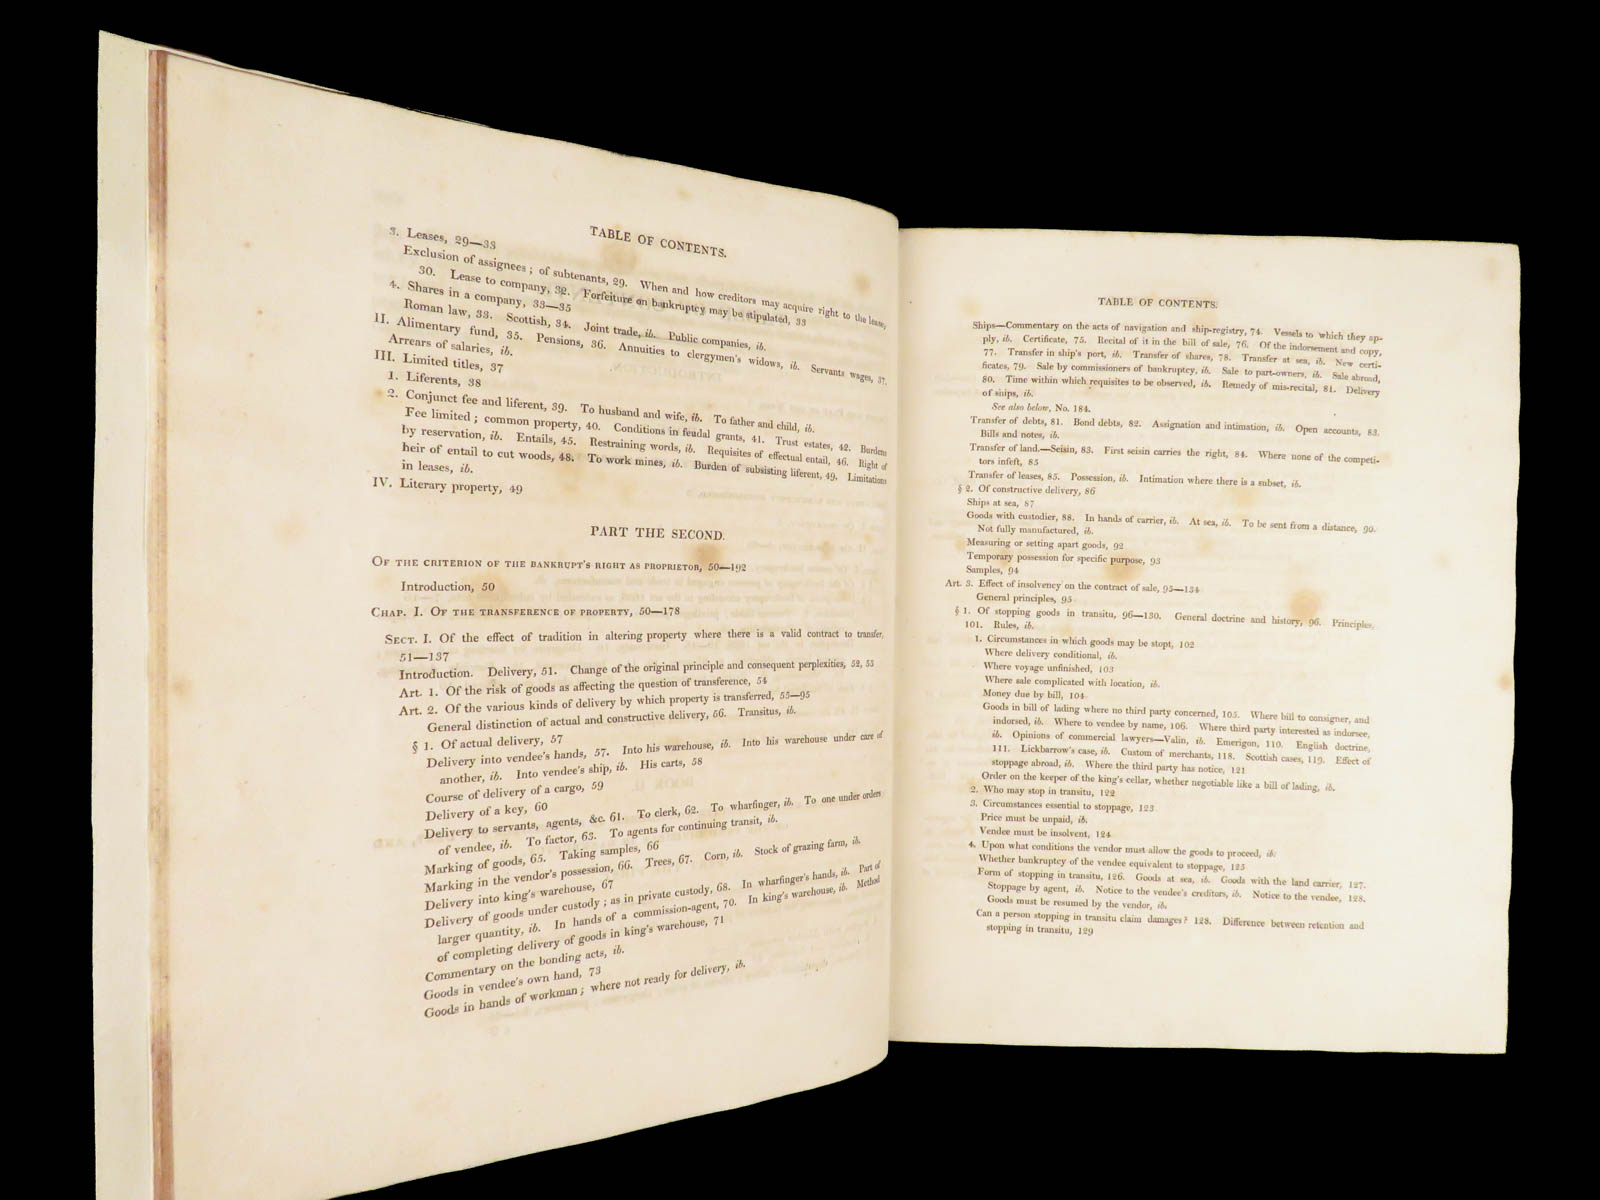 TABLE OF CONTENTS.
3. Leases, 29—33
Exclusion of assignees; of subtenants, 29. When and how creditors may acquire right to the lease,
30. Lease to company, 32. Forfeiture on bankruptcy may be stipulated, 33
4. Shares in a company, 33—35
Roman law, 33. Scottish, 34. Joint trade, ib. Public companies, ib.
II. Alimentary fund, 35. Pensions, 36. Annuities to clergymen's widows, ib. Servants wages, 37.
Arrears of salaries, ib.
III. Limited titles, 37
1. Liferents, 38
2. Conjunct fee and liferent, 39. To husband and wife, ib. To father and child, ib.
Fee limited; common property, 40. Conditions in feudal grants, 41. Trust estates, 42. Burdens
by reservation, ib. Entails, 45. Restraining words, ib. Requisites of effectual entail, 46. Right of
heir of entail to cut woods, 48. To work mines, ib. Burden of subsisting liferent, 49. Limitations
in leases, ib.
IV. Literary property, 49
PART THE SECOND.
OF THE CRITERION OF THE BANKRUPT'S RIGHT AS PROPRIETOR, 50—192
Introduction, 50
CHAP. I. OF THE TRANSFERENCE OF PROPERTY, 50—178
SECT. I. Of the effect of tradition in altering property where there is a valid contract to transfer,
51—137
Introduction. Delivery, 51. Change of the original principle and consequent perplexities, 52, 53
Art. 1. Of the risk of goods as affecting the question of transference, 54
Art. 2. Of the various kinds of delivery by which property is transferred, 55—95
General distinction of actual and constructive delivery, 56. Transitus, ib.
§ 1. Of actual delivery, 57
Delivery into vendee's hands, 57. Into his warehouse, ib. Into his warehouse under care of
another, ib. Into vendee's ship, ib. His carts, 58
Course of delivery of a cargo, 59
Delivery of a key, 60
Delivery to servants, agents, &c. 61. To clerk, 62. To wharfinger, ib. To one under orders
of vendee, ib. To factor, 63. To agents for continuing transit, ib.
Marking of goods, 65. Taking samples, 66
Marking in the vendor's possession, 66. Trees, 67. Corn, ib. Stock of grazing farm, ib.
Delivery into king's warehouse, 67
Delivery of goods under custody; as in private custody, 68. In wharfinger's hands, ib. Part of
larger quantity, ib. In hands of a commission-agent, 70. In king's warehouse, ib. Method
of completing delivery of goods in king's warehouse, 71
Commentary on the bonding acts, ib.
Goods in vendee's own hand, 73
Goods in hands of workman; where not ready for delivery, ib.
TABLE OF CONTENTS.
Ships—Commentary on the acts of navigation and ship-registry, 74. Vessels to which they ap-
ply, ib. Certificate, 75. Recital of it in the bill of sale, 76. Of the indorsement and copy,
77. Transfer in ship's port, ib. Transfer of shares, 78. Transfer at sea, ib. New certi-
ficates, 79. Sale by commissioners of bankruptcy, ib. Sale to part-owners, ib. Sale abroad,
80. Time within which requisites to be observed, ib. Remedy of mis-recital, 81. Delivery
of ships, ib.
See also below, No. 184.
Transfer of debts, 81. Bond debts, 82. Assignation and intimation, ib. Open accounts, 83.
Bills and notes, ib.
Transfer of land.—Seisin, 83. First seisin carries the right, 84. Where none of the competi-
tors infeft, 85
Transfer of leases, 85. Possession, ib. Intimation where there is a subset, ib.
§ 2. Of constructive delivery, 86
Ships at sea, 87
Goods with custodier, 88. In hands of carrier, ib. At sea, ib. To be sent from a distance, 90.
Not fully manufactured, ib.
Measuring or setting apart goods, 92
Temporary possession for specific purpose, 93
Samples, 94
Art. 3. Effect of insolvency on the contract of sale, 95—134
General principles, 95
§ 1. Of stopping goods in transitu, 96—130. General doctrine and history, 96. Principles,
101. Rules, ib.
1. Circumstances in which goods may be stopt, 102
Where delivery conditional, ib.
Where voyage unfinished, 103
Where sale complicated with location, ib.
Money due by bill, 104
Goods in bill of lading where no third party concerned, 105. Where bill to consigner, and
indorsed, ib. Where to vendee by name, 106. Where third party interested as indorsee,
ib. Opinions of commercial lawyers—Valin, ib. Emerigon, 110. English doctrine,
111. Lickbarrow's case, ib. Custom of merchants, 118. Scottish cases, 119. Effect of
stoppage abroad, ib. Where the third party has notice, 121
Order on the keeper of the king's cellar, whether negotiable like a bill of lading, ib.
2. Who may stop in transitu, 122
3. Circumstances essential to stoppage, 123
Price must be unpaid, ib.
Vendee must be insolvent, 124
4. Upon what conditions the vendor must allow the goods to proceed, ib.
Whether bankruptcy of the vendee equivalent to stoppage, 125
Form of stopping in transitu, 126. Goods at sea, ib. Goods with the land carrier, 127.
Stoppage by agent, ib. Notice to the vendee's creditors, ib. Notice to the vendee, 128.
Goods must be resumed by the vendor, ib.
Can a person stopping in transitu claim damages? 128. Difference between retention and
stopping in transitu, 129